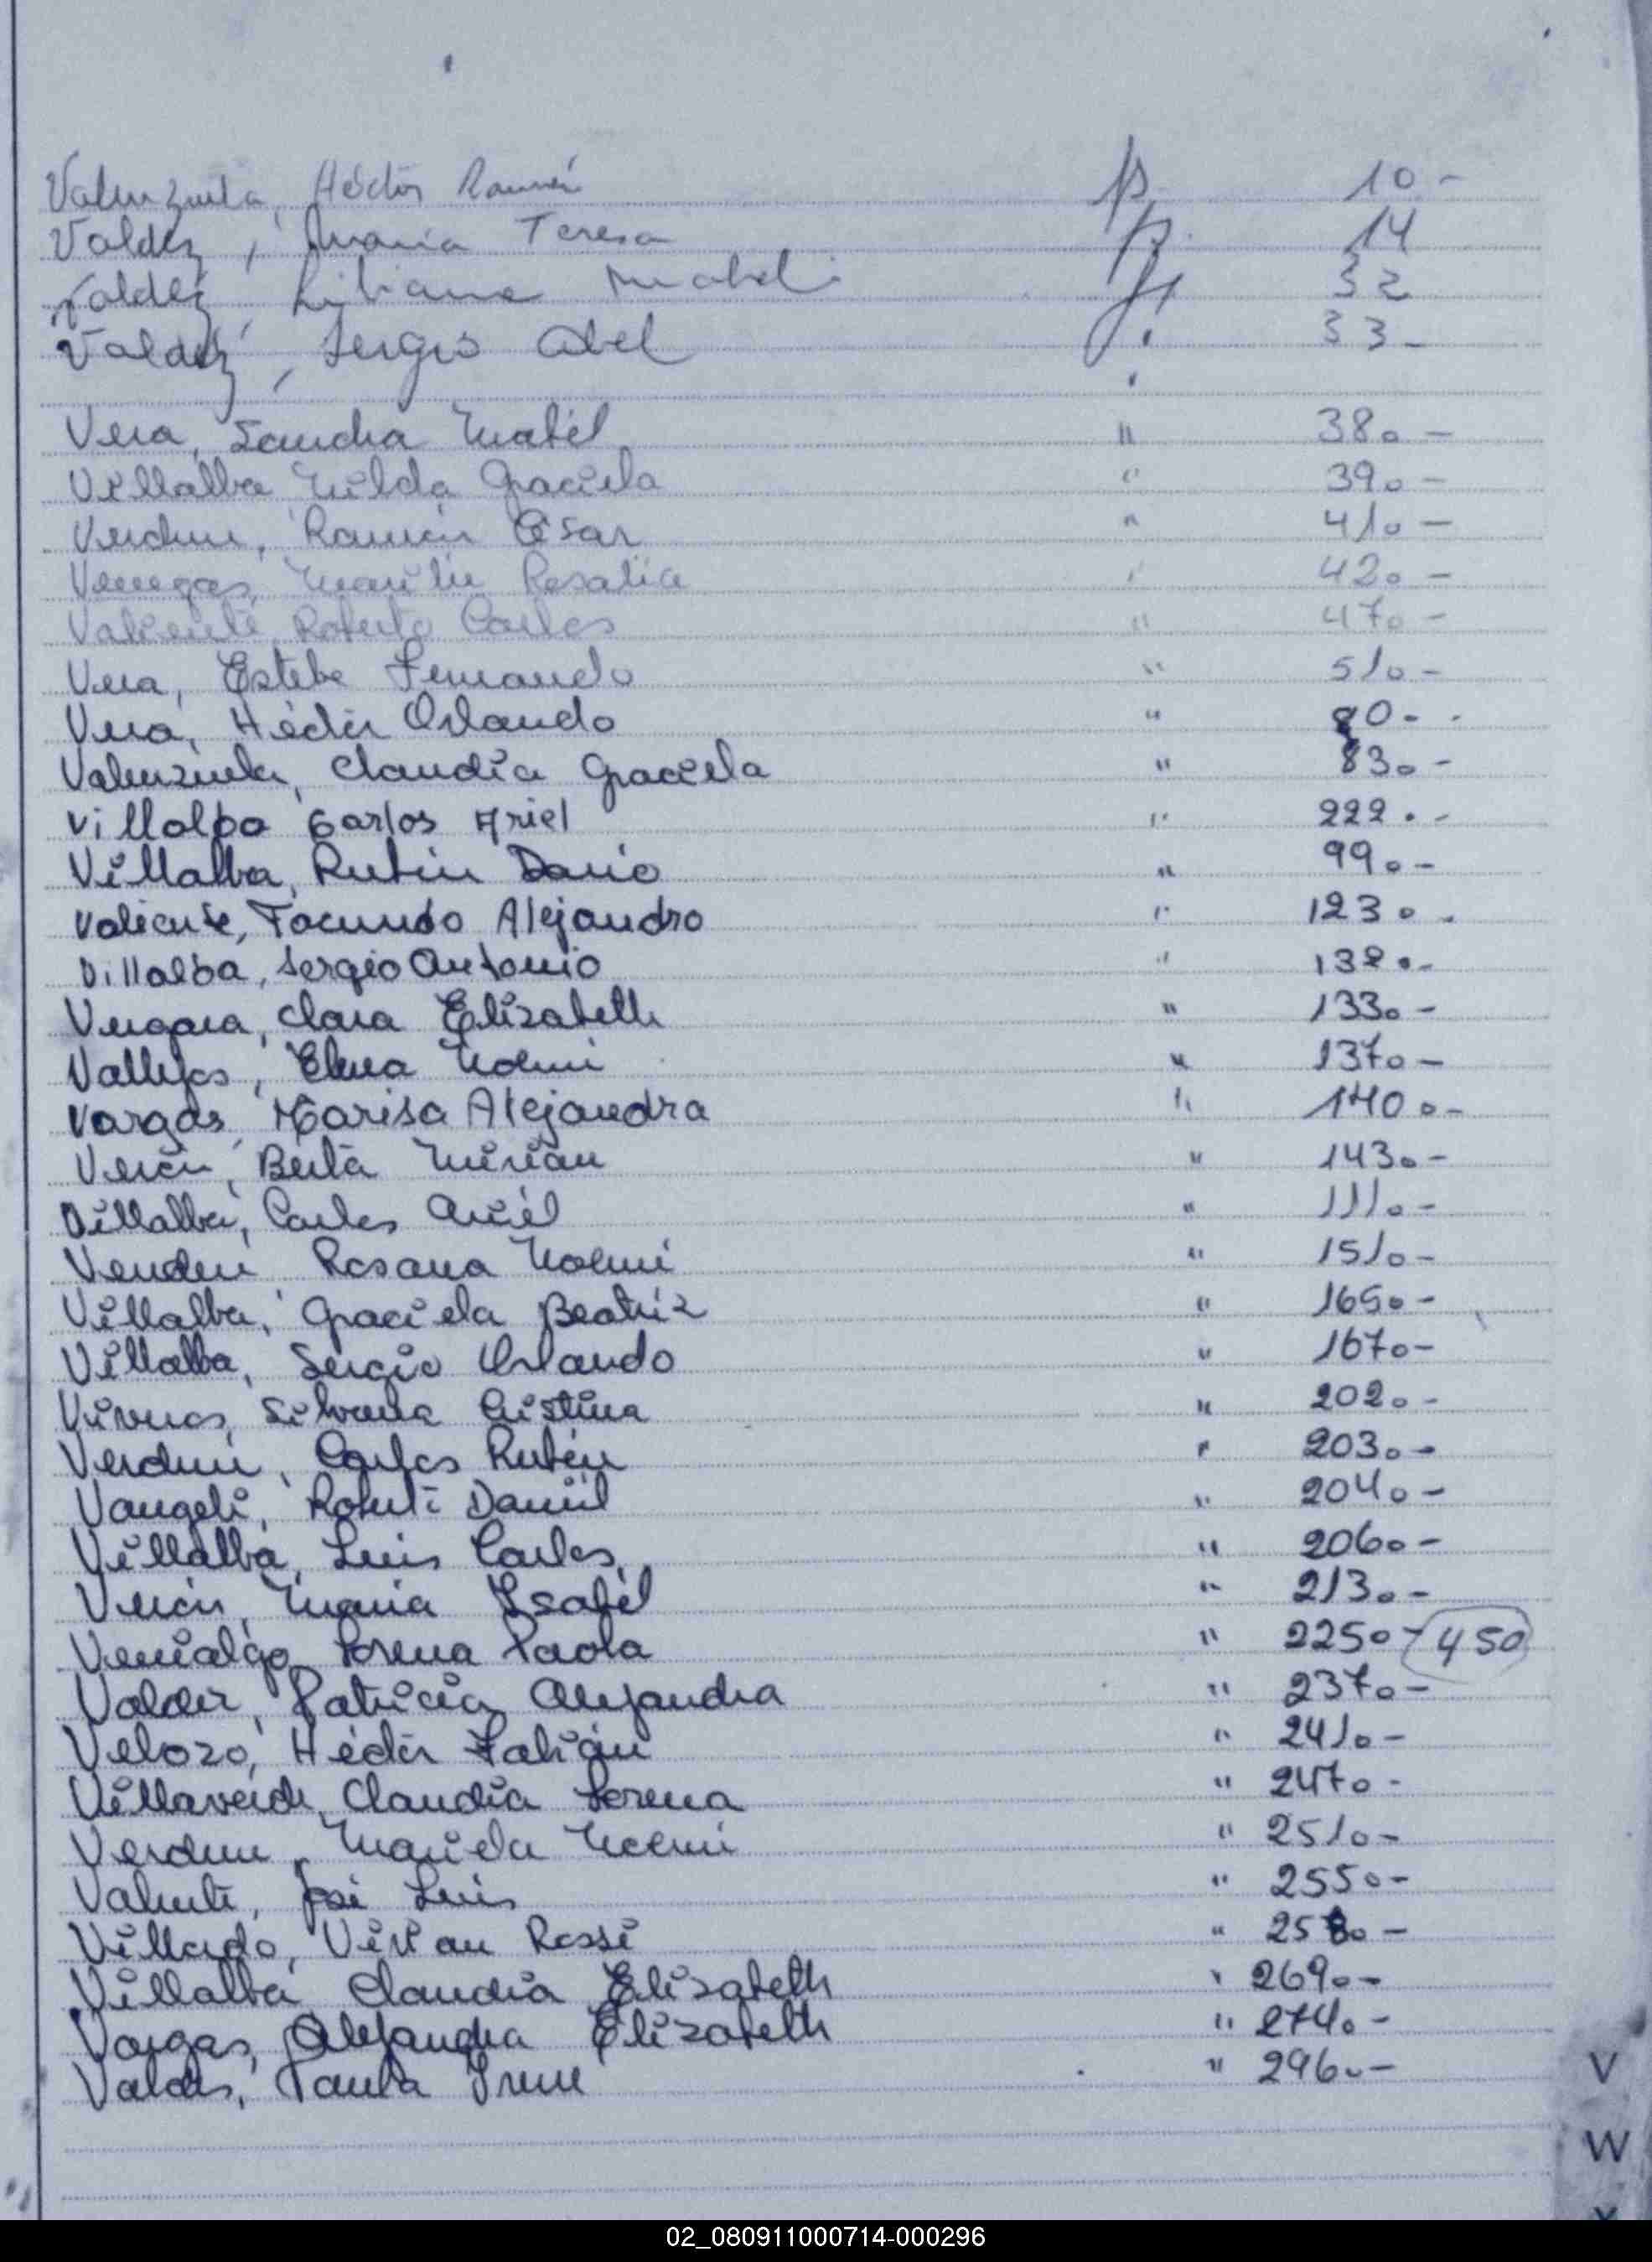 Valenzuela, Héctor Ramón p. 10 -
Valdez, Maria Teresa p. 14
Valdez, Liliana Mabel f. 32
Valdez, Sergio Abel f. 33 -
Vera, Sandra Mabel " 380 -
Villalba Nilda Graciela " 390 -
Verdun, Ramón César " 410 -
Venegas, Marilin Rosalia " 420 -
Valiente Roberto Carlos " 470 -
Vera, Esteba Fernando " 510 -
Vera, Héctor Orlando " 80 - -
Valenzuela, Claudia Graciela " 830 -
Villalba Carlos Ariel " 222 . -
Villalba, Rubén Dario " 990 -
Valiente, Facundo Alejandro " 1230 -
Villalba, Sergio Antonio " 132 . -
Vergara, Clara Elizabeth " 1330 -
Vallejos, Elena Noemi " 1370 -
Vargas, Marisa Alejandra " 1400 -
Verón, Berta Mirian " 1430 -
Villalba, Carlos Ariel " 1110 -
Verdun Rosana Noemi " 1510 -
Villalba, Graciela Beatriz " 1650 -
Villalba, Sergio Orlando " 1670 -
Viveros, Silvana Cristina " 2020 -
Verdun, Carlos Rubén " 2030 -
Vangeli, Roberto Daniel " 2040 -
Villalba, Luis Carlos " 2060 -
Verón, Maria Isabel " 2130 -
Venialgo Lorena Paola " 2250 - 450
Valdez, Patricia Alejandra " 2370 -
Velozo, Héctor Fabián " 2410 -
Villaverde, Claudia Lorena " 2470 -
Verdun, Mariela Noemi " 2510 -
Valiente, José Luis " 2550 -
Villado, Vivian Rossi " 2580 -
Villalba Claudia Elizabeth " 2690 -
Vargas, Alejandra Elizabeth " 2740 -
Valdes, Paula Irene " 2960 -
V
W
02_080911000714-000296